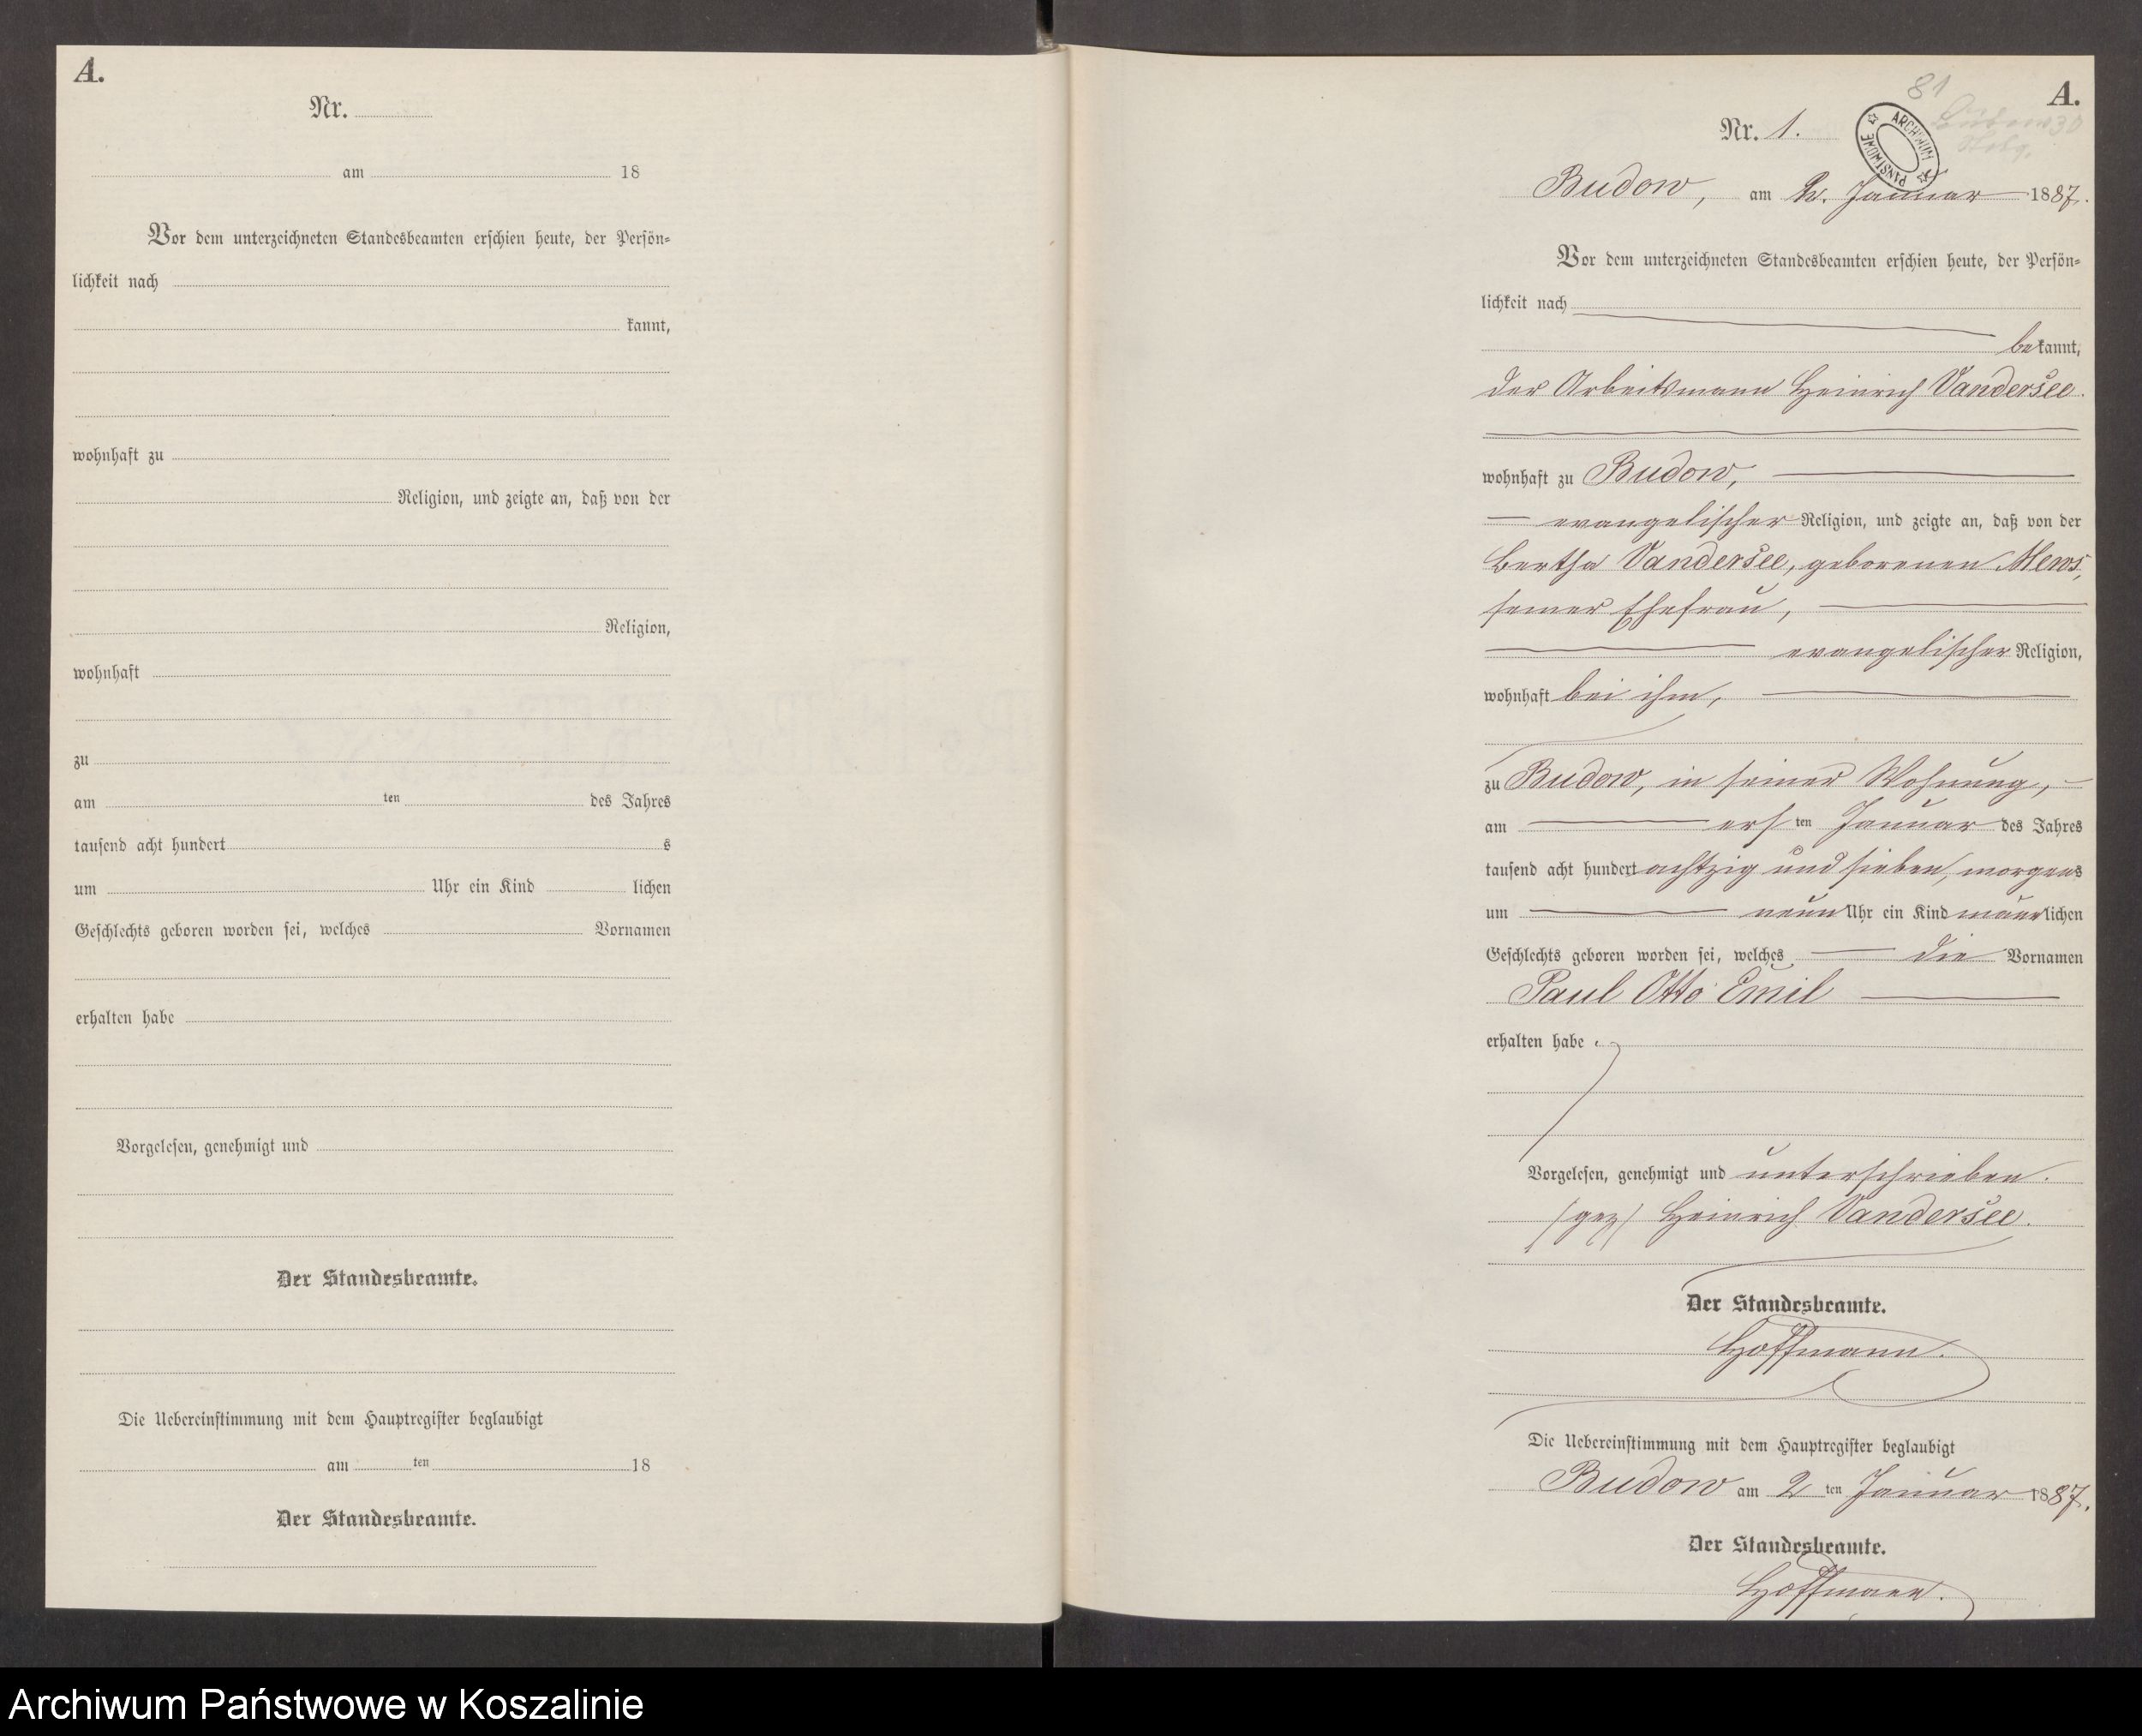 A.
Nr.
am 18
Vor dem unterzeichneten Standesbeamten erschien heute, der Persön=
lichkeit nach
kannt,
wohnhaft zu
Religion, und zeigte an, daß von der
Religion,
wohnhaft
zu
am ten des Jahres
tausend acht hundert s
um Uhr ein Kind lichen
Geschlechts geboren worden sei, welches Vornamen
erhalten habe
Vorgelesen, genehmigt und
Der Standesbeamte.
Die Uebereinstimmung mit dem Hauptregister beglaubigt
am ten 18
Der Standesbeamte.
81
A.
Nr. 1.
ARCHIWUM PAŃSTWOWE
Budow, am 2. Januar 1887.
Vor dem unterzeichneten Standesbeamten erschien heute, der Persön=
lichkeit nach
bekannt,
der Arbeitsmann Heinrich Vandersee.
wohnhaft zu Budow,
evangelischer Religion, und zeigte an, daß von der
Bertha Vandersee, geborenen Mews,
seiner Ehefrau,
evangelischer Religion,
wohnhaft bei ihm,
zu Budow, in seiner Wohnung,
am ersten Januar des Jahres
tausend acht hundert achtzig und sieben, morgens
um neun Uhr ein Kind männlichen
Geschlechts geboren worden sei, welches die Vornamen
Paul Otto Emil
erhalten habe.
Vorgelesen, genehmigt und unterschrieben.
(gez) Heinrich Vandersee.
Der Standesbeamte.
Hoffmann.
Die Uebereinstimmung mit dem Hauptregister beglaubigt
Budow am 2ten Januar 1887.
Der Standesbeamte.
Hoffmann.
Archiwum Państwowe w Koszalinie